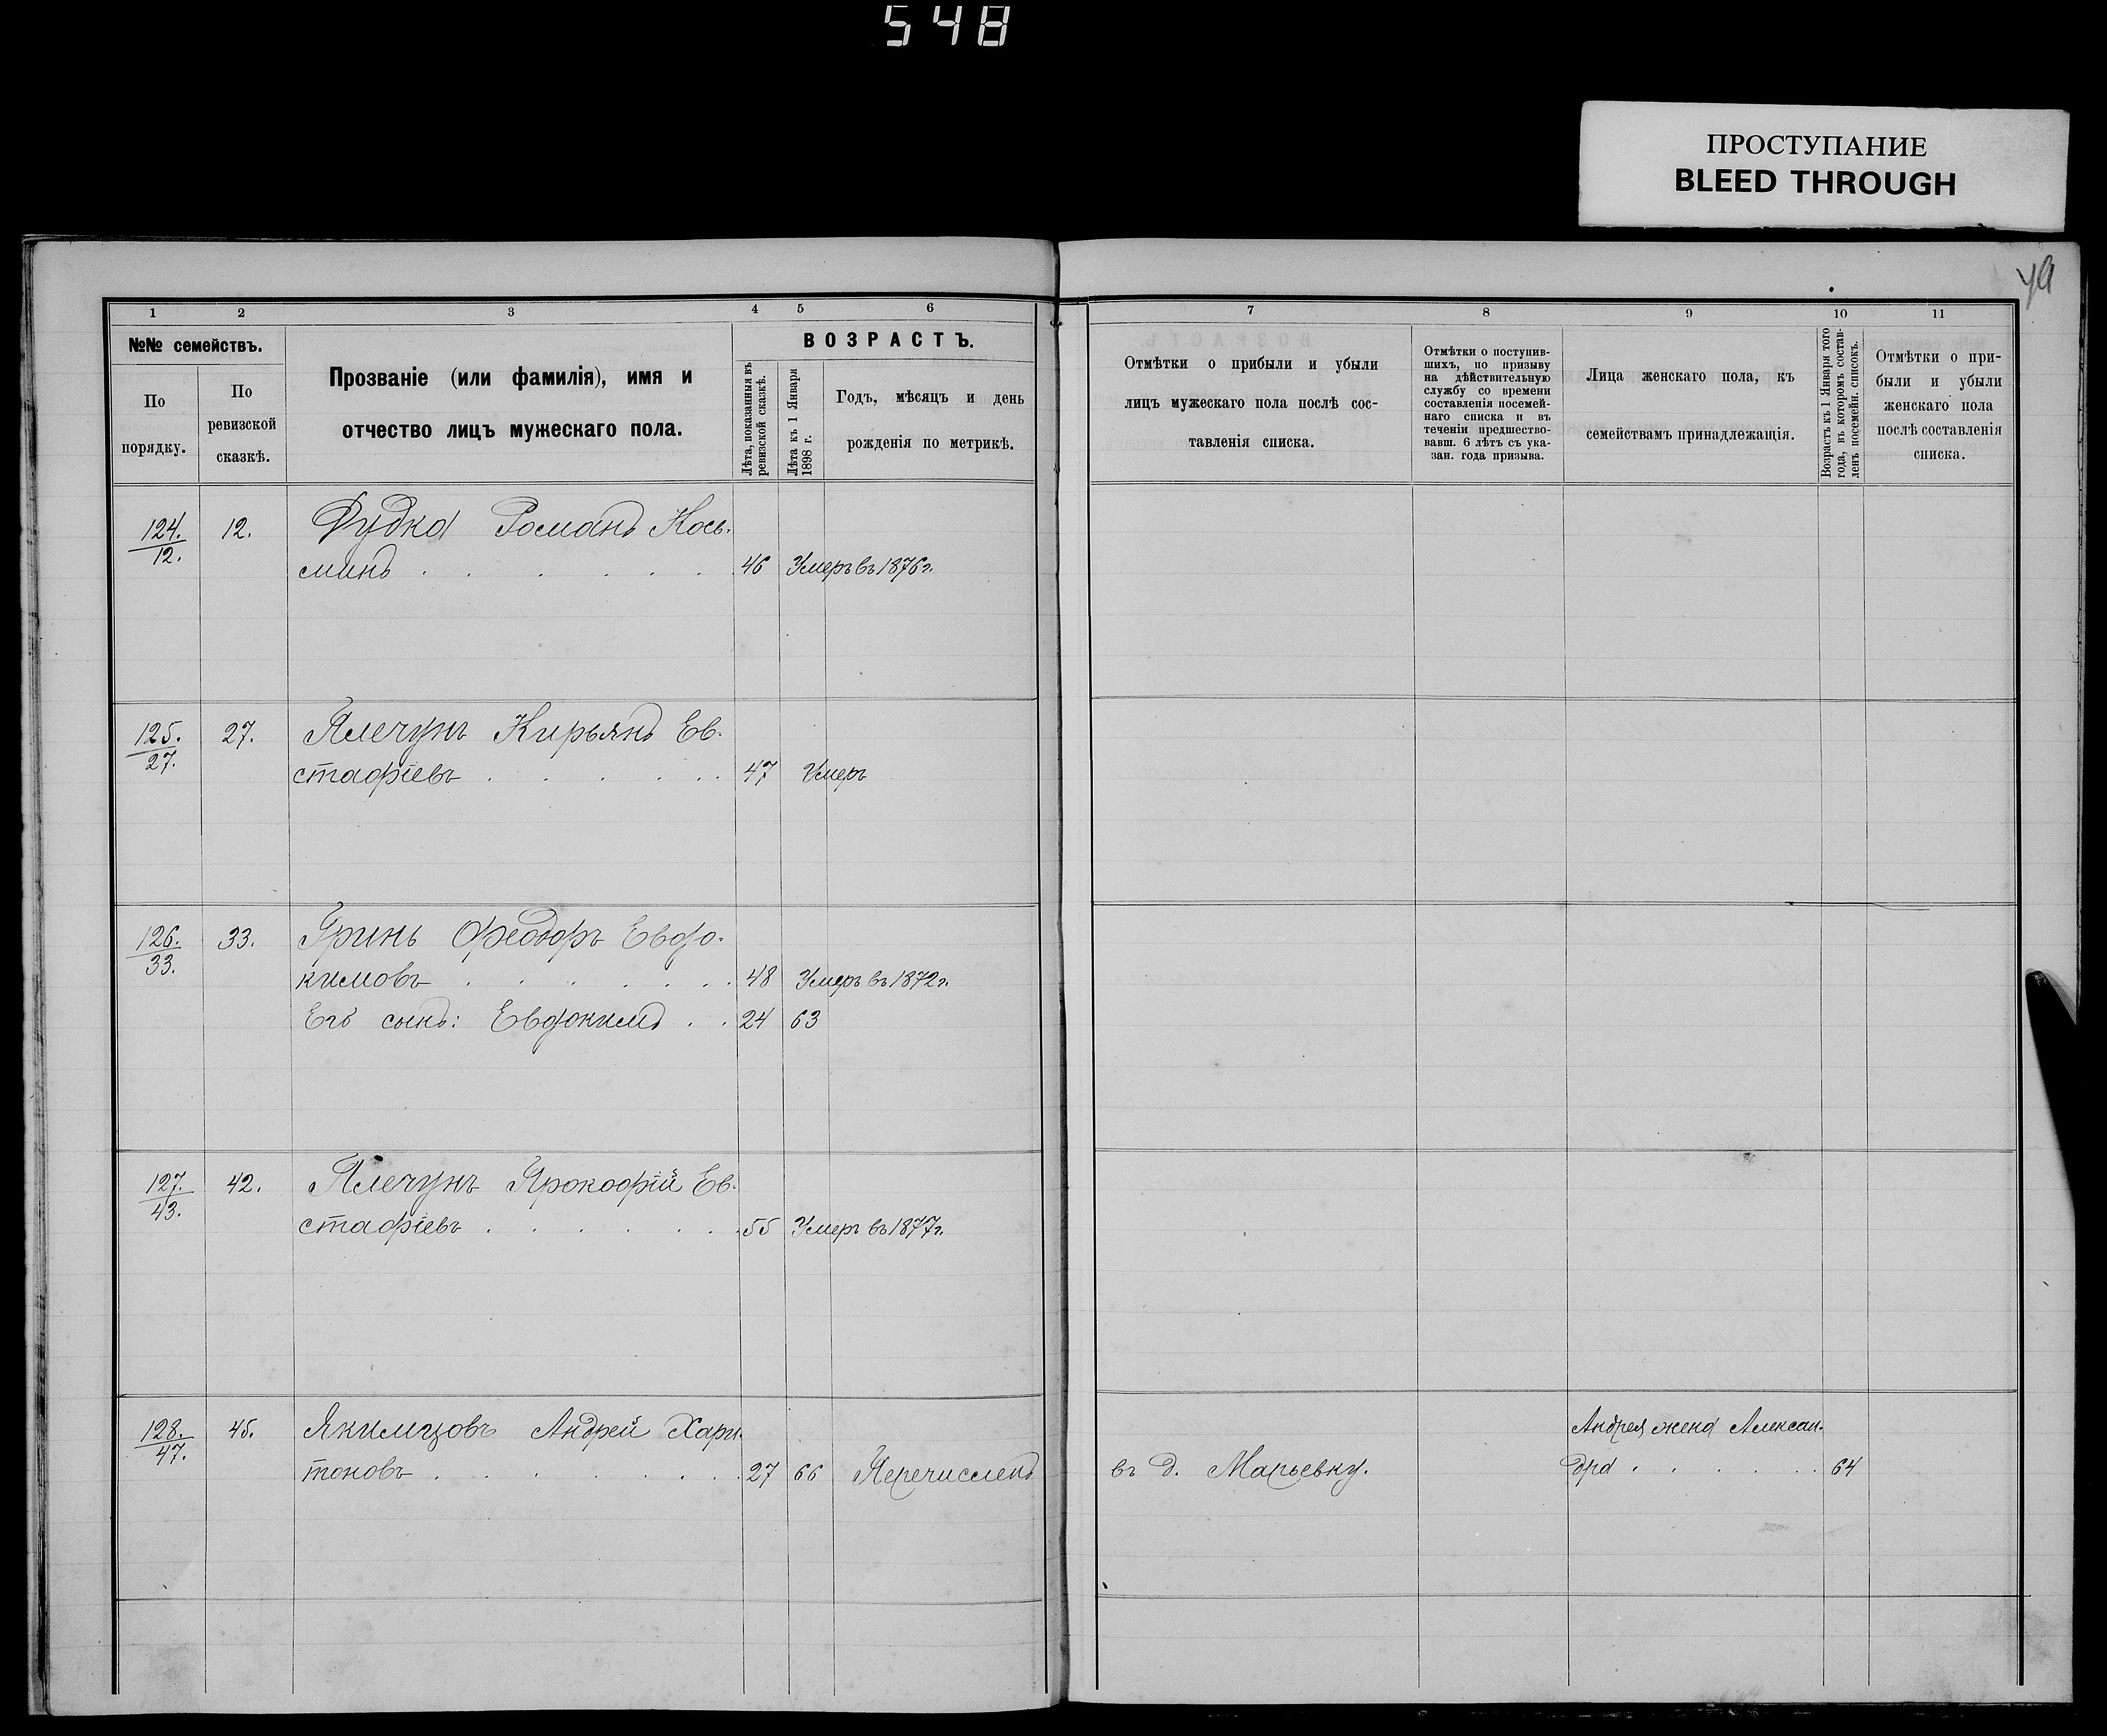 548
ПРОСТУПАНИЕ
BLEED THROUGH
1 2 3 4 5 6 7 8 9 10 11
№№ семействъ.
По
порядку.
По
ревизской
сказкѣ.
Прозваніе (или фамилія), имя и
отчество лицъ мужескаго пола.
ВОЗРАСТЪ.
Лѣта, показанныя въ
ревизской сказкѣ.
Лѣта къ 1 Января
1898 г.
Годъ, мѣсяцъ и день
рожденія по метрикѣ.
Отмѣтки о прибыли и убыли
лицъ мужескаго пола послѣ сос-
тавленія списка.
Отмѣтки о поступив-
шихъ, по призыву
на дѣйствительную
службу со времени
составленія посемей-
наго списка и въ
теченіи предшество-
вавш. 6 лѣтъ съ ука-
зан. года призыва.
Лица женскаго пола, къ
семействамъ принадлежащія.
Возрастъ къ 1 Января того
года, въ которомъ состав-
ленъ посемейн. списокъ.
Отмѣтки о при-
были и убыли
женскаго пола
послѣ составленія
списка.
124. 12. Дудка Романъ Кось-
12. минъ . . . . . . 46 Умеръ въ 1876 г.
125. 27. Плечунъ Кирьянъ Ев-
27. стафіевъ . . . . . 47 Умеръ
126. 33. Гринь Феодоръ Евдо-
33. кимовъ . . . . . . 48 Умеръ въ 1872 г.
Его сынъ: Евдокимъ . . 24 63
127. 42. Плечунъ Прокофій Ев-
43. стафіевъ . . . . . . 55 Умеръ въ 1877 г.
128. 45. Якимцовъ Андрей Хари- Андрея жена Алексан-
47. тоновъ . . . . . . 27 66 Перечисленъ въ д. Марьевку. дра . . . . . 64